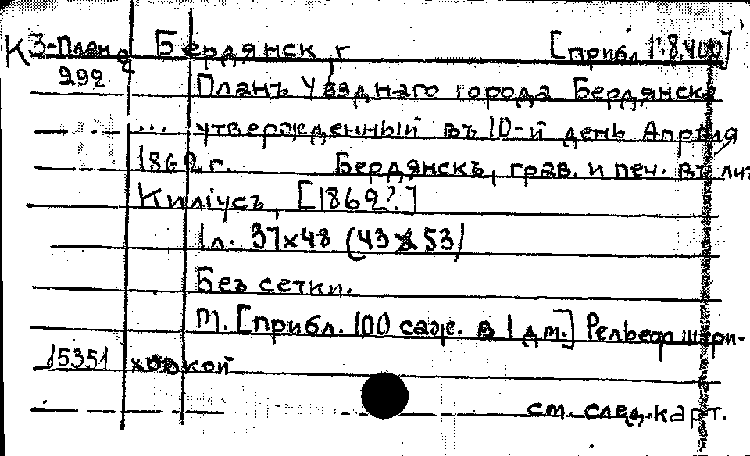 К 3-План 9 Бердянск, г. [прибл. 1:8.400]
292 Планъ Уѣзднаго города Бердянска
... утвержденный въ 10-й день Апрѣля
1869 г. Бердянскъ, грав. и печ. въ лит.
Киліусъ, [1869?]
1 л. 37х48 (43х53)
Без сетки.
М. [прибл. 100 саж. в 1 дм.] Рельеф штри-
15351 ховкой
см. след. карт.